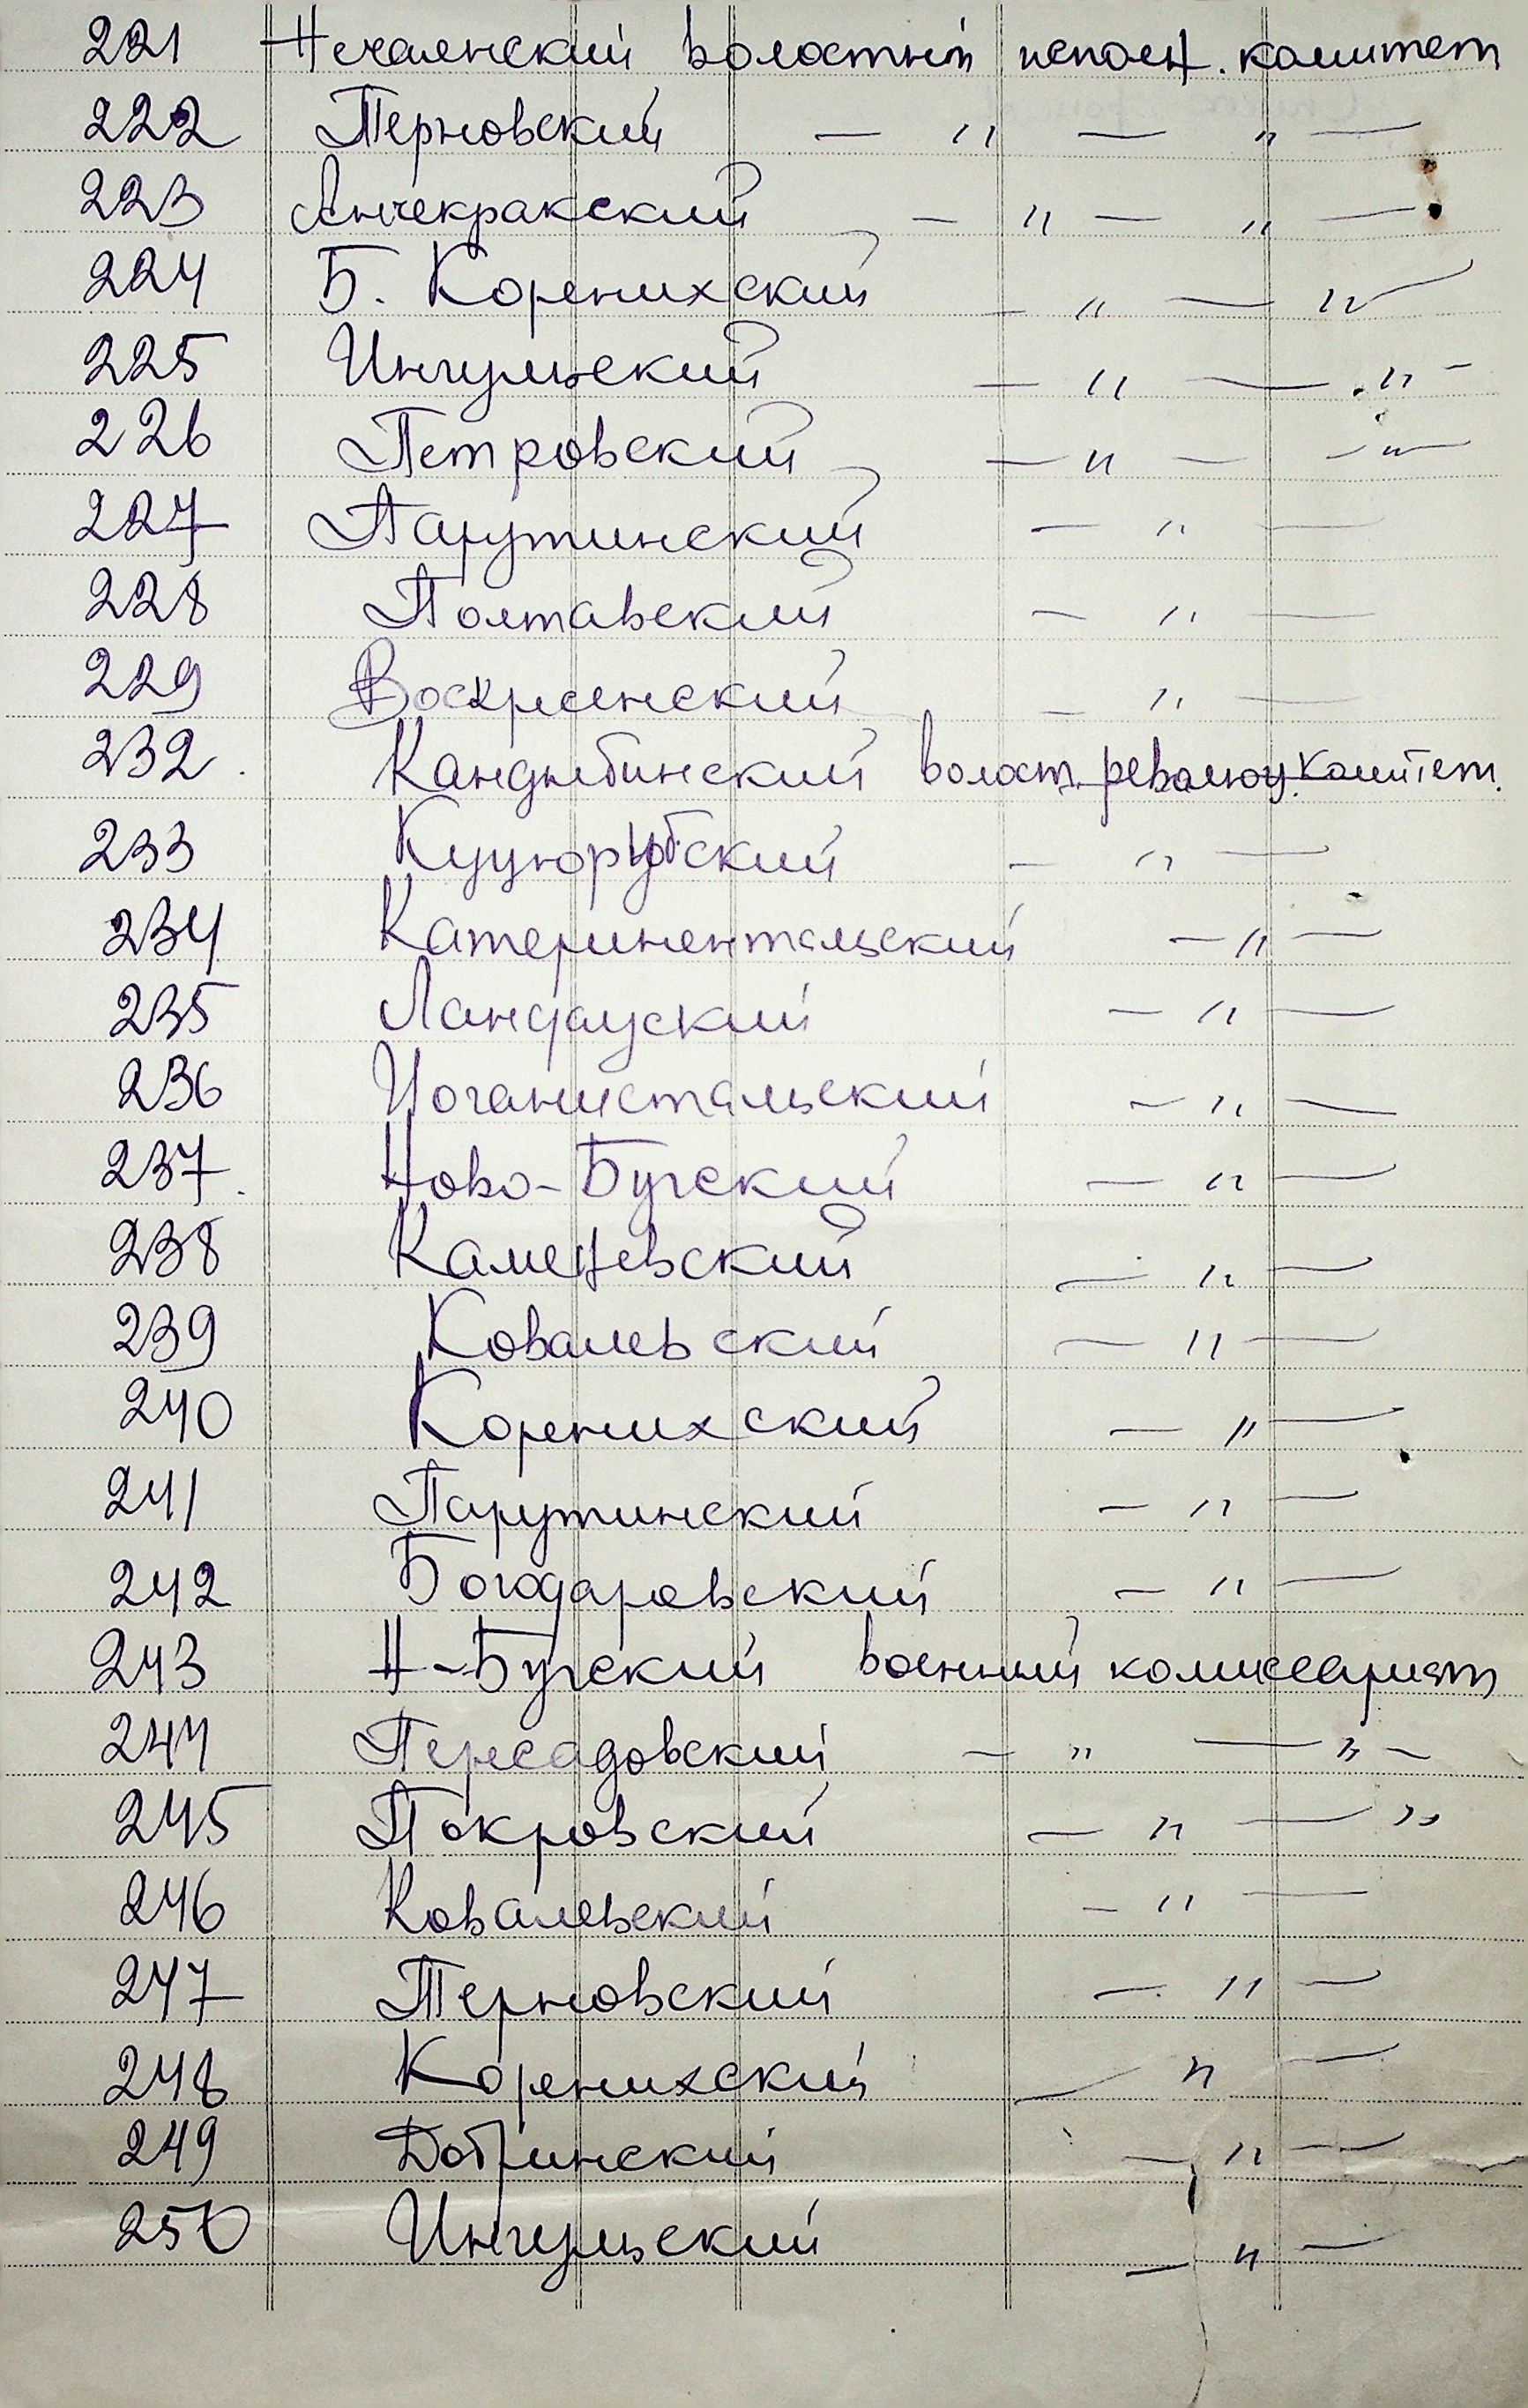 221 Нечаянский волостный исполн. комитет
222 Терновский — " — " —
223 Анчекракский — " — " —
224 Б. Коренихский — " — " —
225 Ингульский — " — " -
226 Петровский — " — - " —
227 Парутинский — " —
228 Полтавский — " —
229 Воскресенский — " —
232. Кандыбинский волост. революц. комітет.
233 Куцюрубский — " —
234 Катеринентальский — " —
235 Ландауский — " —
236 Иоганистальский — " —
237. Ново-Бугский — " —
238 Каменевский — " —
239 Ковалевский — " —
240 Коренихский — " —
241 Парутинский — " —
242 Богодаровский — " —
243 Н-Бугский военный комиссариат
244 Пересадовский — " — " —
245 Покровский — " — "
246 Ковалевский — " —
247 Терновский — " —
248 Коренихский — " —
249 Добринский — " —
250 Ингульский — " —